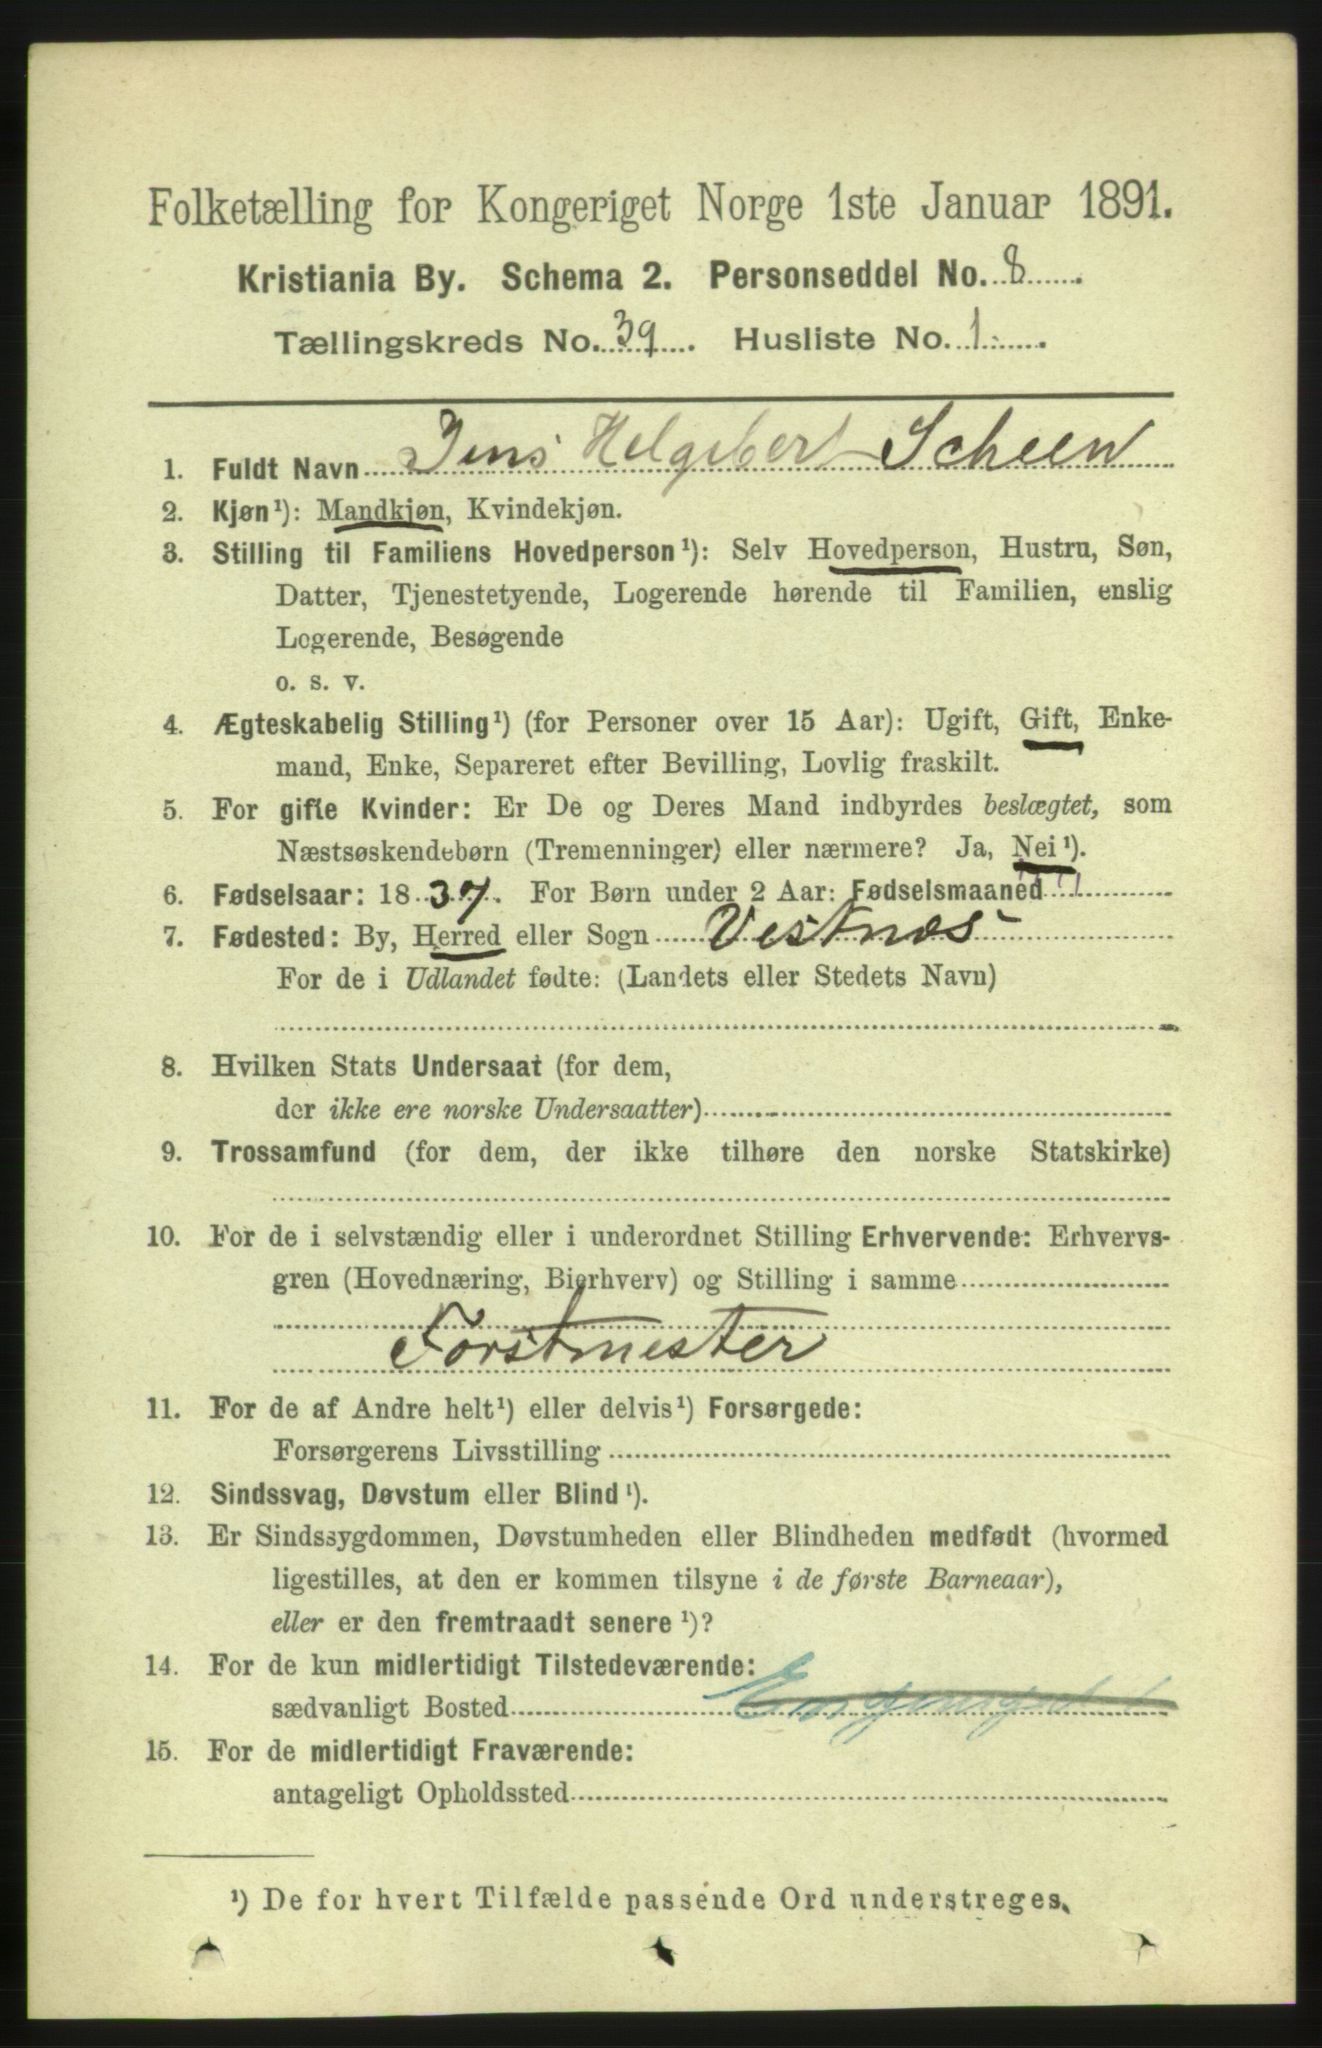 Folketælling for Kongeriget Norge 1ste Januar 1891.
Kristiania By. Schema 2. Personseddel No. 8
Tællingskreds No. 39. Husliste No. 1.
1. Fuldt Navn Jens Helgebert Scheen
2. Kjøn¹): Mandkjøn, Kvindekjøn.
3. Stilling til Familiens Hovedperson¹): Selv Hovedperson, Hustru, Søn,
Datter, Tjenestetyende, Logerende hørende til Familien, enslig
Logerende, Besøgende
o. s. v.
4. Ægteskabelig Stilling¹) (for Personer over 15 Aar): Ugift, Gift, Enke-
mand, Enke, Separeret efter Bevilling, Lovlig fraskilt.
5. For gifte Kvinder: Er De og Deres Mand indbyrdes beslægtet, som
Næstsøskendebørn (Tremenninger) eller nærmere? Ja, Nei¹).
6. Fødselsaar: 1837. For Børn under 2 Aar: Fødselsmaaned
7. Fødested: By, Herred eller Sogn Vestnæs
For de i Udlandet fødte: (Landets eller Stedets Navn)
8. Hvilken Stats Undersaat (for dem,
der ikke ere norske Undersaatter)
9. Trossamfund (for dem, der ikke tilhøre den norske Statskirke)
10. For de i selvstændig eller i underordnet Stilling Erhvervende: Erhvervs-
gren (Hovednæring, Bierhverv) og Stilling i samme
Forstmester
11. For de af Andre helt¹) eller delvis¹) Forsørgede:
Forsørgerens Livsstilling
12. Sindssvag, Døvstum eller Blind¹).
13. Er Sindssygdommen, Døvstumheden eller Blindheden medfødt (hvormed
ligestilles, at den er kommen tilsyne i de første Barneaar),
eller er den fremtraadt senere¹)?
14. For de kun midlertidigt Tilstedeværende:
sædvanligt Bosted
15. For de midlertidigt Fraværende:
antageligt Opholdssted
¹) De for hvert Tilfælde passende Ord understreges.